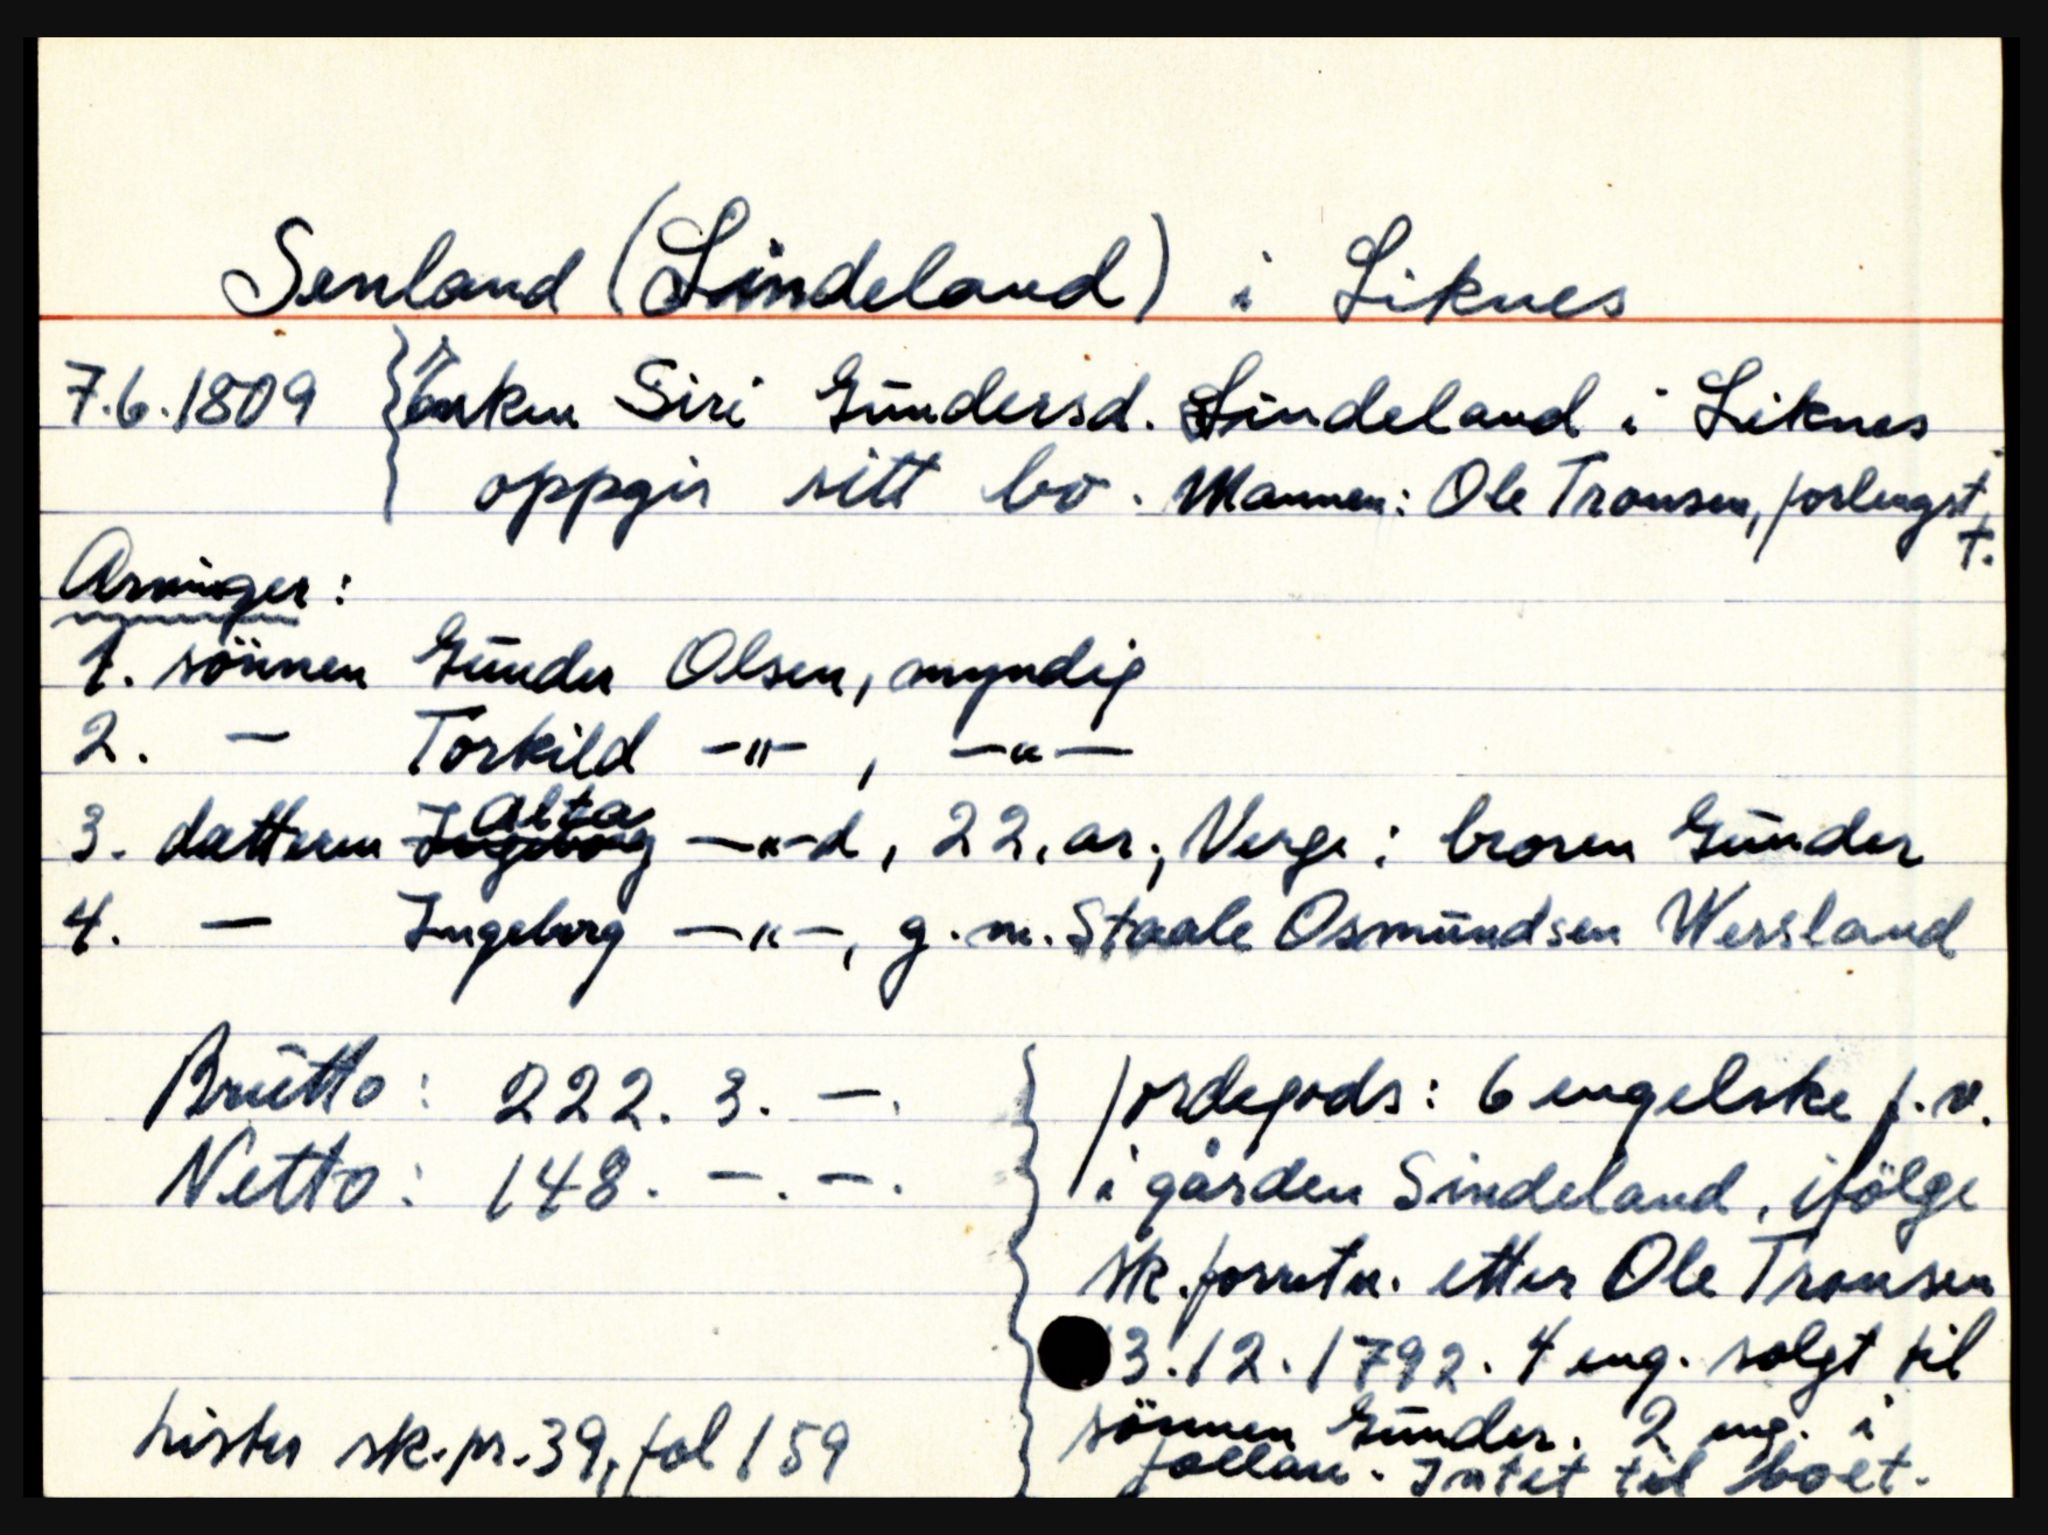 Senland (Sindeland) i Liknes
7.6.1809 Enken Siri Gundersd. Sindeland i Liknes
oppgir sitt bo. Mannen: Ole Tronsen, forlengst
†.
Arvinger:
1. sönnen Gunder Olsen, myndig
2. — Torkild —"— , —"—
3. datteren Alta —"—d, 22. ar., Verge: broren Gunder
4. — Ingeborg —"—, g.m. Staale Osmundsen Wersland
Brutto: 222. 3. —.
Netto: 148. —. —.
Jordegods: 6 engelske i.v.
i gården Sindeland, ifölge
sk.forretn. etter Ole Tronsen
3.12.1792. 4 eng. solgt til
sönnen Gunder. 2 eng. i
follau. Intet til boet.
Lister sk.pr.39, fol 159